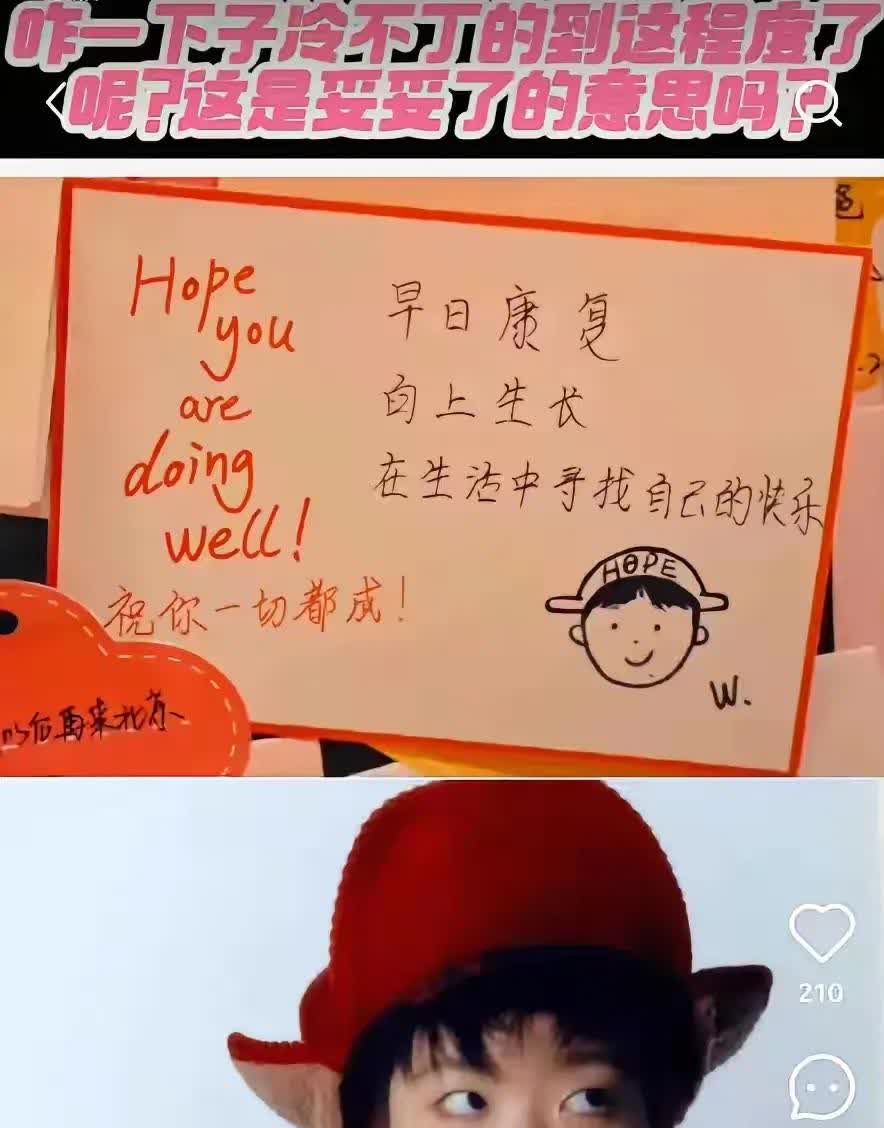 咋一下子冷不丁的到这程度了
呢?这是妥妥了的意思吗?
Hope
you
are
doing
well!
祝你一切都成!
早日康复
向上生长
在生活中寻找自己的快乐
HOPE
W.
以后再来北京
210